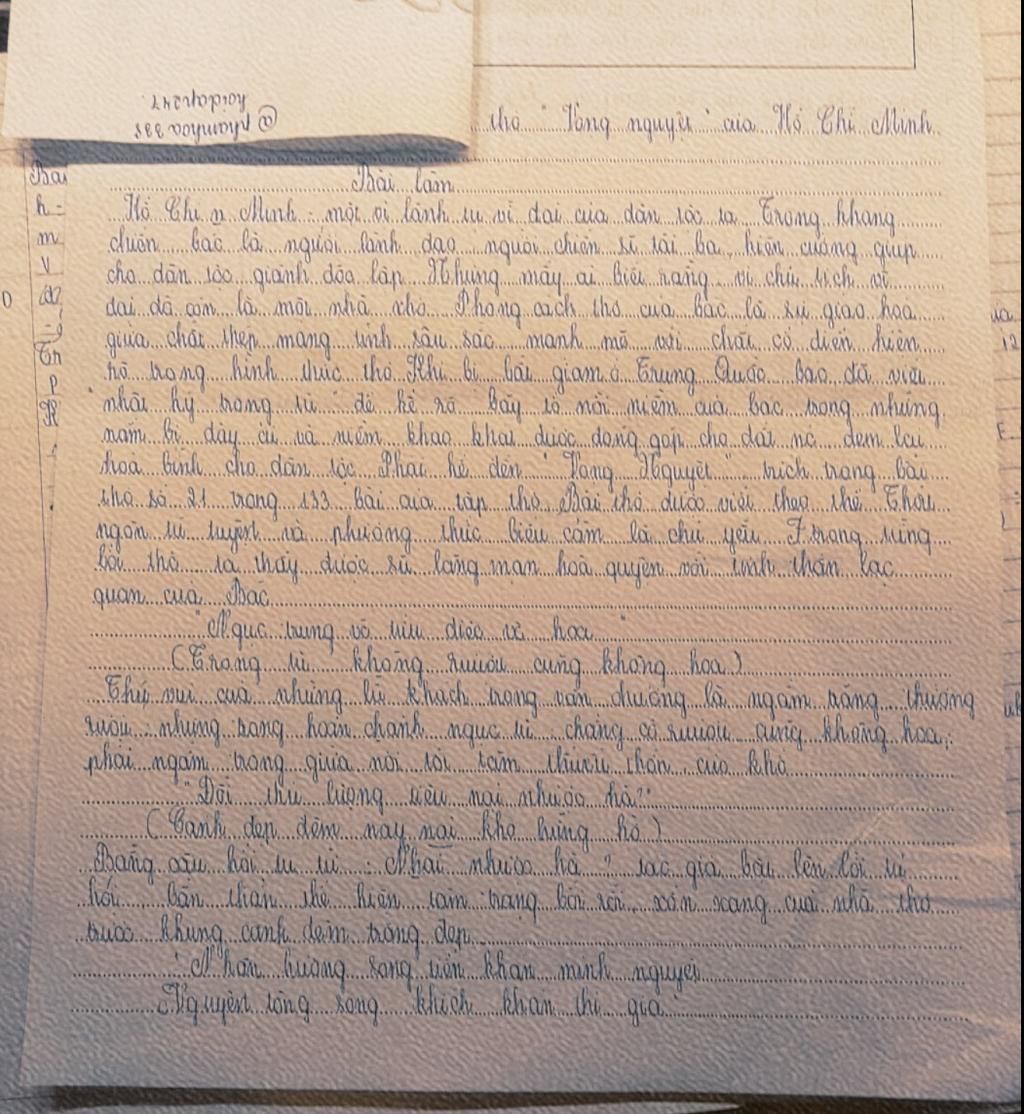 @phamhoa338
hoidap247.
thơ "Vọng nguyệt" của Hồ Chí Minh
Bài làm
Hồ Chí Minh - một vị lãnh tụ vĩ đại của dân tộc ta. Trong kháng
chiến bác là người lãnh đạo, người chiến sĩ tài ba, kiên cường giúp
cho dân tộc giành độc lập. Nhưng mấy ai biết rằng vị chủ tịch vĩ
đại đã còn là một nhà thơ. Phong cách thơ của bác là sự giao hoà
giữa chất thép mang tính sâu sắc mạnh mẽ với chất cổ điển hiện
rõ trong hình thức thơ. Khi bị bắt giam ở Trung Quốc Bác đã viết
"nhật ký trong tù" để kể rõ bày tỏ nỗi niềm của bác trong những
năm bị đày ải và niềm khao khát được đóng góp cho đất nc đem lại
hoà bình cho dân tộc. Phải kể đến "Vọng Nguyệt" trích trong bài
thơ số 21 trong 133 bài của tập thơ. Bài thơ được viết theo thể Thất
ngôn tứ tuyệt và phương thức biểu cảm là chủ yếu. Trong từng
lời thơ ta thấy được sự lãng mạn hoà quyện với tinh thần lạc
quan của Bác
"Ngục trung vô tửu diệc vô hoa"
(Trong tù không rượu cũng không hoa)
Thú vui của những lữ khách trong văn chương là ngắm trăng thưởng
rượu nhưng trong hoàn cảnh ngục tù chẳng có rượu cũng không hoa,
phải ngắm trong giữa nơi tối tăm thiếu thốn, cực khổ
"Đối thử lương tiêu nại nhược hà?"
(Cảnh đẹp đêm nay nại khó hững hờ)
Bằng câu hỏi tu từ "Nhại nhược hà?" tác giả bật lên lời tự
hỏi bản thân thể hiện tâm trạng bối rối, xốn xang của nhà thơ
trước khung cảnh đêm trăng đẹp
"Nhân hướng song tiền khán minh nguyệt
Nguyệt tòng song khích khán thi gia"